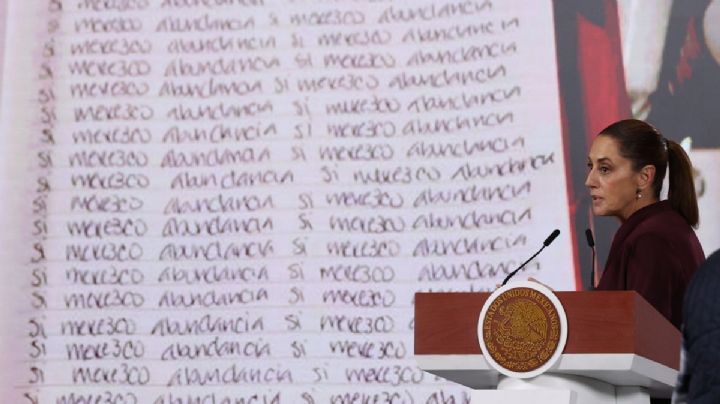 si merezco abundancia si merezco abundancia
si merezco abundancia si merezco abundancia
si merezco abundancia si merezco abundancia
si merezco abundancia si merezco abundancia
si merezco abundancia si merezco abundancia
si merezco abundancia si merezco abundancia
si merezco abundancia si merezco abundancia
si merezco abundancia si merezco abundancia
si merezco abundancia si merezco abundancia
si merezco abundancia si merezco abundancia
si merezco abundancia si merezco abundancia
si merezco abundancia si merezco abundancia
si merezco abundancia si merezco abundancia
si merezco abundancia si merezco
si merezco abundancia si merezco
si merezco abundancia si merezco
si merezco abundancia si merezco
si merezco abundancia si merezco
ESTADOS UNIDOS MEXICANOS